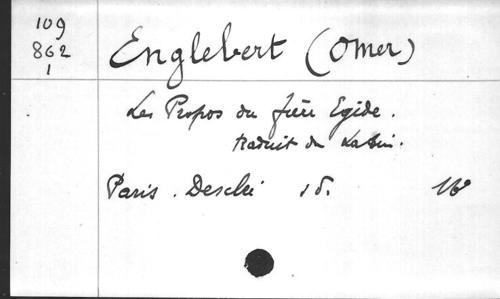 109
862
1
Englebert (Omer)
Les Propos du frère Egide.
traduit du Latin.
Paris. Desclée s d. 16°